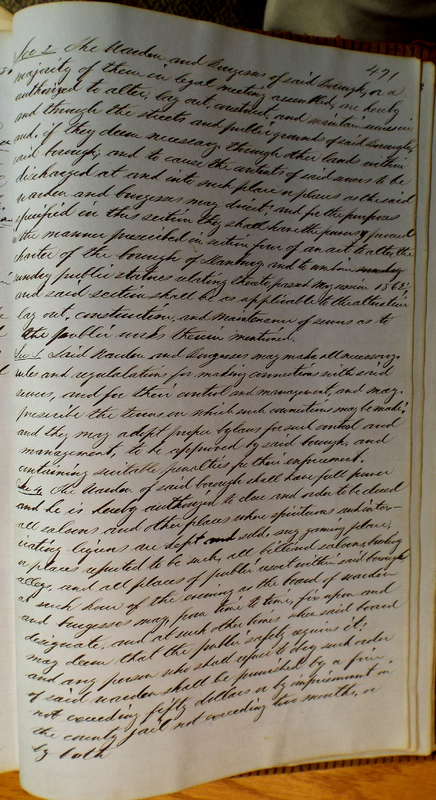 491
Sec 2. The Warden and Burgesses of said Borough, or a
majority of them in legal meeting assembled, are hereby
authorized to alter, lay out, construct, and maintain sewers in
and through the streets and public grounds of said borough,
and, if they deem necessary, through other lands within
said borough; and to cause the contents of said sewers to be
discharged at and into such place or places as the said
warden and burgesses may direct; and for the purposes
specified in this section they shall have the power & proceed
in the manner prescribed in section four of an act to alter the
charter of the borough of Danbury and to combine
sundry public statutes relating thereto, passed May session 1862,
and said section shall be as applicable to the alteration
lay out, construction, and maintenance of sewers as to
the public works therein mentioned.
Sec 3. Said Warden and Burgesses may make all necessary
rules and regulalations for making connections with said
sewers, and for their control and management, and may
prescribe the terms on which such connections may be made,
and they may adopt proper bylaws for such control and
management, to be approved by said borough, and
containing suitable penalties for their enforcement.
Sec 4. The Warden of said borough shall have full power
and he is hereby authorized to close and order to be closed
all saloons and other places where spirituous and intox-
icating liquors are kept and sold, any gaming place,
or places reputed to be such, all billiard saloons, bowling
alleys, and all places of public resort within said borough
at such hour of the evening as the board of warden
and burgesses may, from time to time, fix upon and
designate, and at such other times when said board
may deem that the public safety requires it;
and any person who shall refuse to obey such order
of said warden shall be punished by a fine
not exceeding fifty dollars or by imprisonment in
the county jail not exceeding two months, or
by both